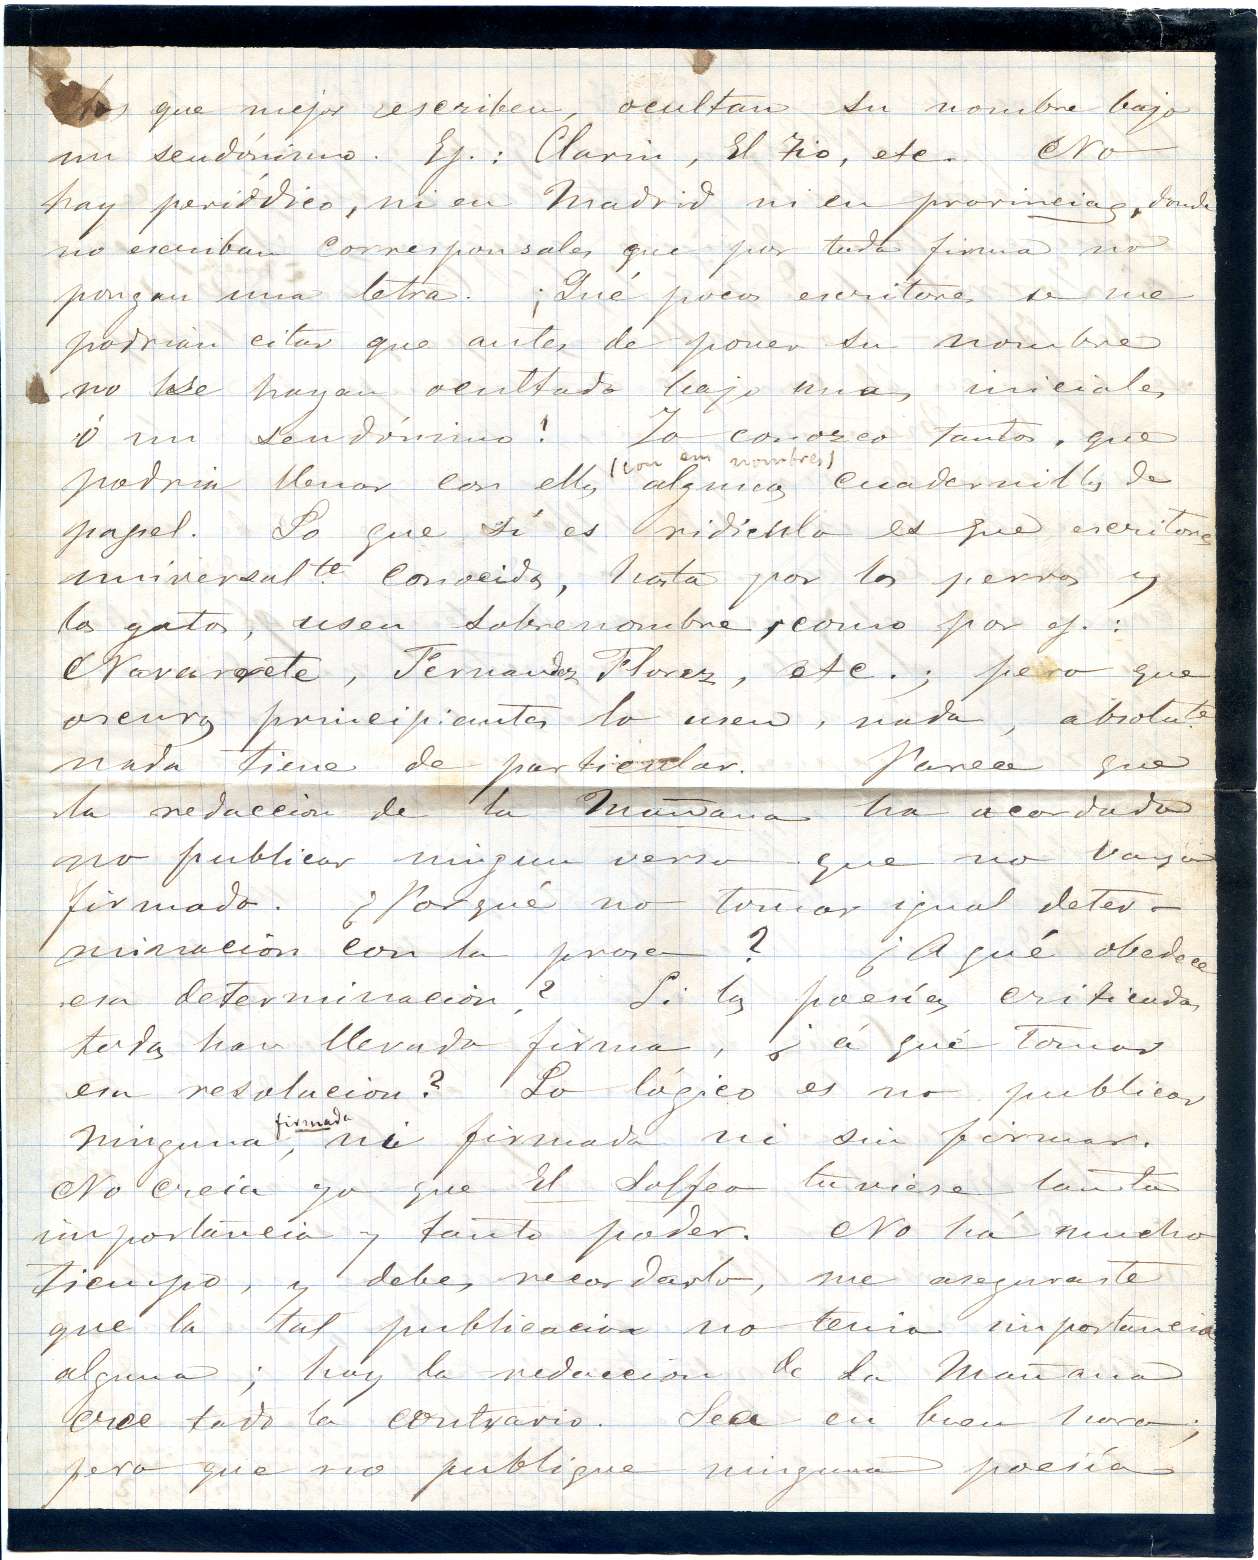 los que mejor escriben, ocultan su nombre bajo
un seudónimo. Ej.: Clarin, El Tio, etc. No
hay periódico, ni en Madrid ni en provincias, donde
no escriban corresponsales que por toda firma no
pongan una letra. ¡Qué pocos escritores se me
podrian citar que antes de poner su nombre
no se hayan ocultado bajo unas iniciales
ó un seudónimo! Yo conozco tantos, que
(con sus nombres)
podria llenar con ellos algunos cuadernillos de
papel. Lo que sí es ridículo es que escritores
universalte conocidos, hasta por los perros y
los gatos, usen sobrenombre, como por ej.:
Navarrete, Fernandez Florez, etc.; pero que
oscuros principiantes lo usen, nada, absolute
nada tiene de particular. Parece que
la redaccion de la Mañana ha acordado
no publicar ningun verso que no vaya
firmado. ¿Porqué no tomar igual deter-
minacion con la prosa? ¿A qué obedece
esa determinacion? Si las poesías criticadas
todas han llevado firma, ¿á qué tomar
esa resolucion? Lo lógico es no publicar
firmada
ninguna, ni firmada ni sin firmar.
No creia yo que El Solfeo tuviese tanta
importancia y tanto poder. No há mucho
tiempo, y debes recordarlo, me aseguraste
que la tal publicacion no tenia importancia
alguna; hoy la redaccion de La Mañana
cree todo lo contrario. Sea en buen hora;
pero que no publique ninguna poesía